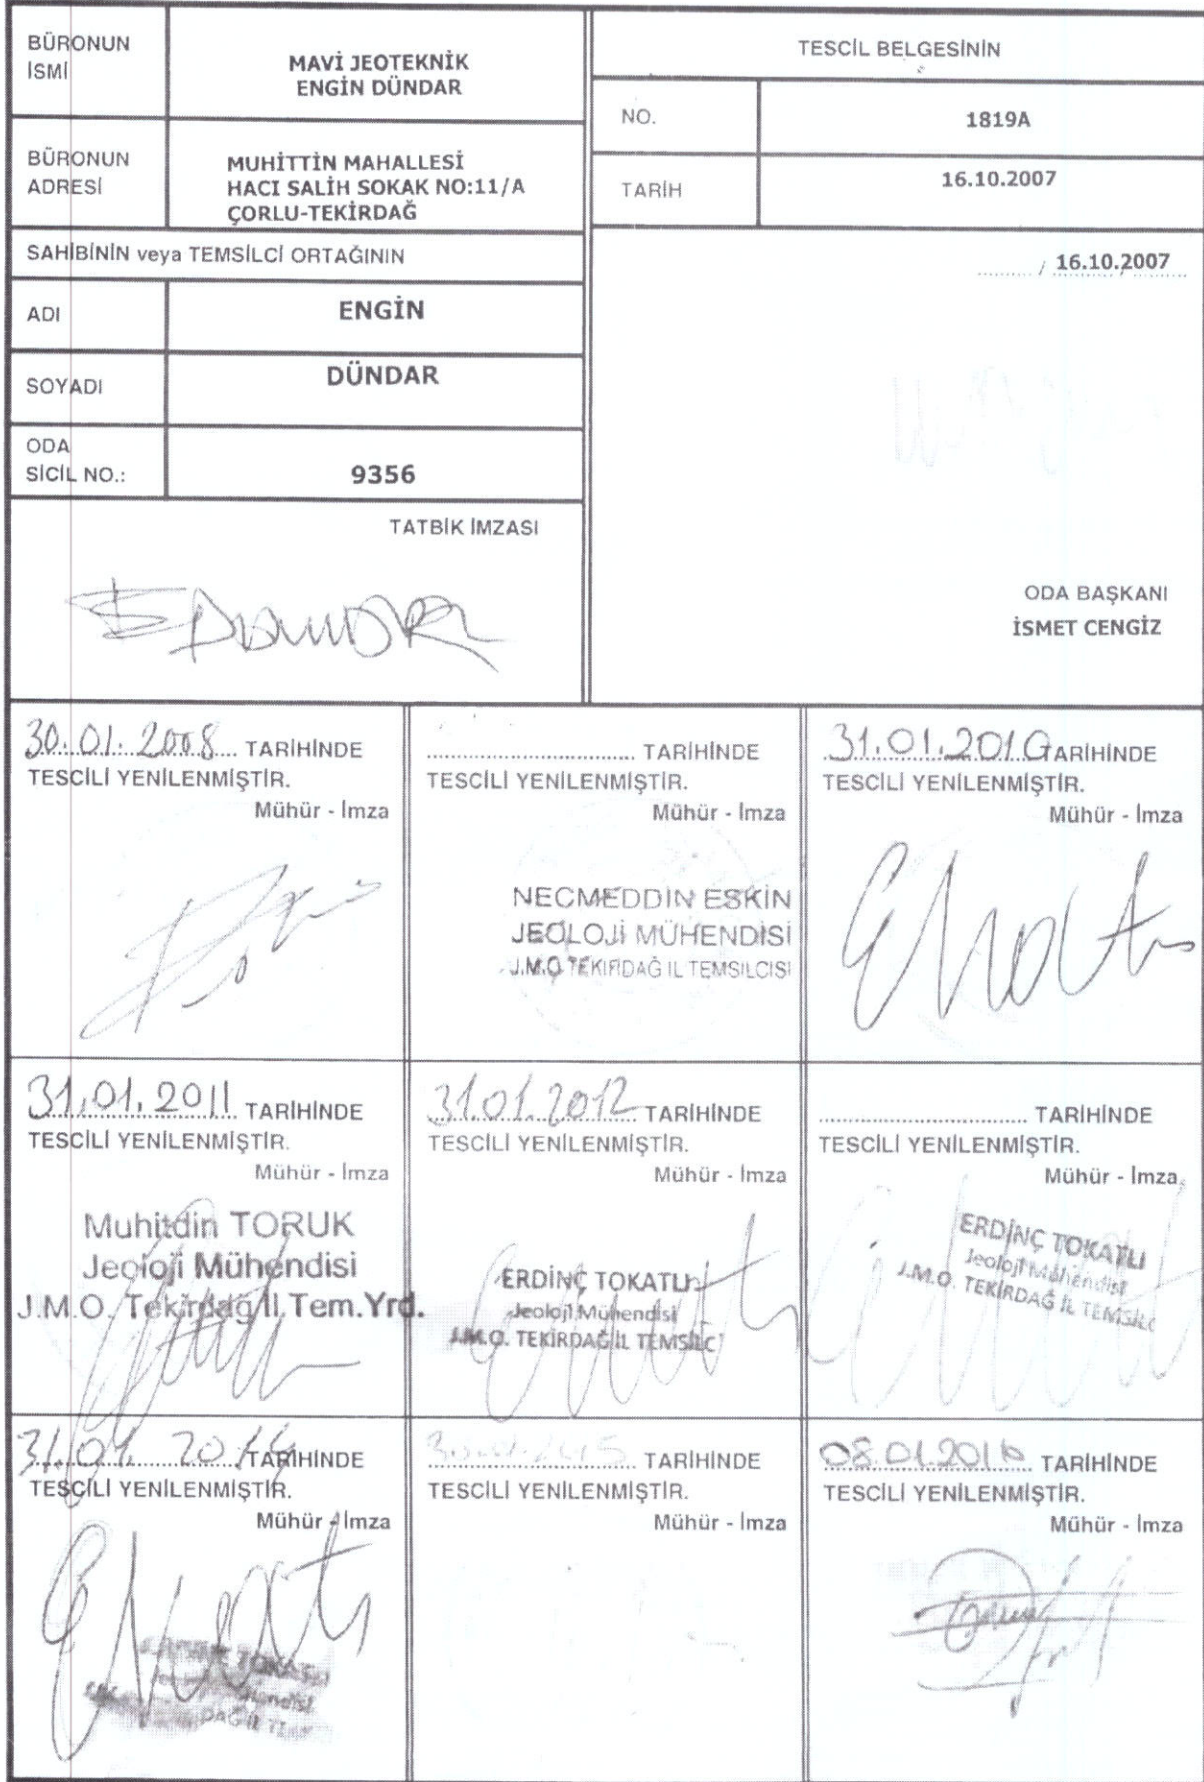 BÜRONUN
İSMİ
MAVİ JEOTEKNİK
ENGİN DÜNDAR
BÜRONUN
ADRESİ
MUHİTTİN MAHALLESİ
HACI SALİH SOKAK NO:11/A
ÇORLU-TEKİRDAĞ
SAHİBİNİN veya TEMSİLCİ ORTAĞININ
ADI
ENGİN
SOYADI
DÜNDAR
ODA
SİCİL NO.:
9356
TATBİK İMZASI
TESCİL BELGESİNİN
NO.
1819A
TARİH
16.10.2007
......... / 16.10.2007
ODA BAŞKANI
İSMET CENGİZ
30.01.2008 TARİHİNDE
TESCİLİ YENİLENMİŞTİR.
Mühür - İmza
.................................. TARİHİNDE
TESCİLİ YENİLENMİŞTİR.
Mühür - İmza
NECMEDDİN ESKİN
JEOLOJİ MÜHENDİSİ
J.M.O TEKİRDAĞ İL TEMSİLCİSİ
31.01.2010 TARİHİNDE
TESCİLİ YENİLENMİŞTİR.
Mühür - İmza
31.01.2011 TARİHİNDE
TESCİLİ YENİLENMİŞTİR.
Mühür - İmza
Muhitdin TORUK
Jeoloji Mühendisi
J.M.O. Tekirdağ İl.Tem.Yrd.
31.01.2012 TARİHİNDE
TESCİLİ YENİLENMİŞTİR.
Mühür - İmza
ERDİNÇ TOKATLI
Jeoloji Mühendisi
J.M.O. TEKİRDAĞ İL TEMSİLC
.................................. TARİHİNDE
TESCİLİ YENİLENMİŞTİR.
Mühür - İmza
ERDİNÇ TOKATLI
Jeoloji Mühendisi
J.M.O. TEKİRDAĞ İL TEMSİLC
31.01.2014 TARİHİNDE
TESCİLİ YENİLENMİŞTİR.
Mühür - İmza
30.01.2015 TARİHİNDE
TESCİLİ YENİLENMİŞTİR.
Mühür - İmza
08.01.2016 TARİHİNDE
TESCİLİ YENİLENMİŞTİR.
Mühür - İmza